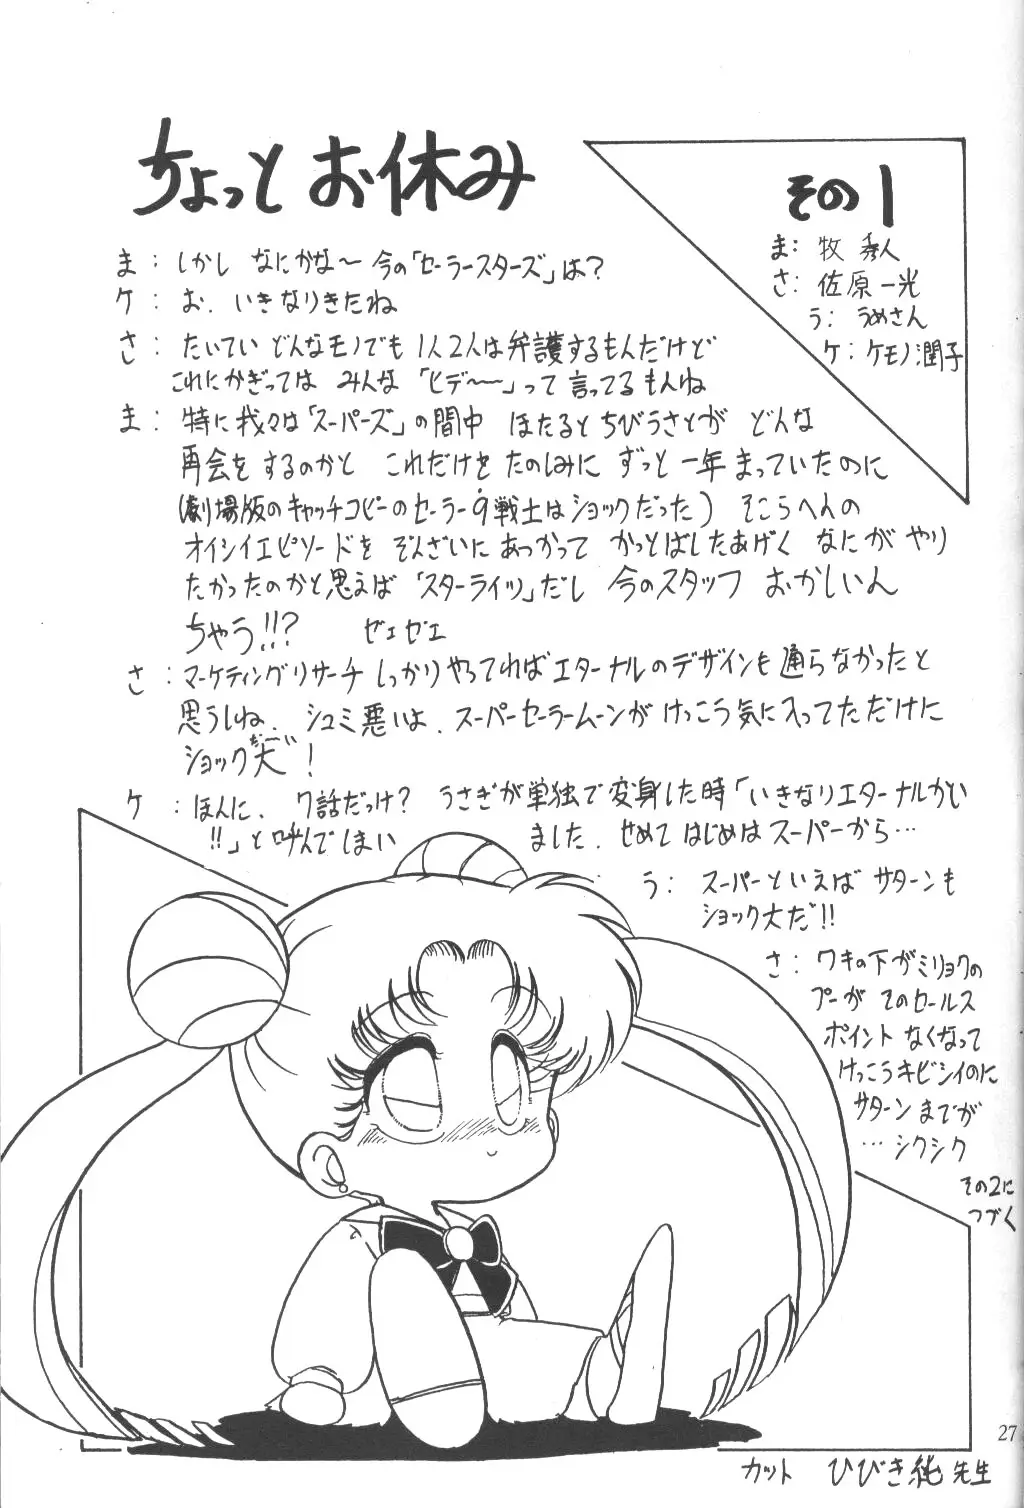 ちょっとお休み
その1
ま: 牧 秀人
さ: 佐原一光
う: うめさん
ケ: ケモノ潤子
ま: しかし なにかな〜 今の「セーラースターズ」は?
ケ: お. いきなりきたね
さ: たいてい どんなモノでも 1人2人は弁護するもんだけど
これにかぎっては みんな 「ヒデ〜〜」って言ってるもんね
ま: 特に我々は「スーパーズ」の間中 ほたるとちびうさとが どんな
再会をするのかと これだけを たのしみに ずっと一年まっていたのに
(劇場版のキャッチコピーのセーラー9戦士はショックだった) そこらへんの
オイシイエピソードを ぞんざいにあつかって かっとばしたあげく なにがやり
たかったのかと思えば 「スターライツ」だし 今のスタッフ おかしいん
ちゃう!!? ゼェゼェ
さ: マーケティングリサーチ しっかりやってればエターナルのデザインも通らなかったと
思うしね. シュミ悪いよ. スーパーセーラームーンがけっこう気に入ってただけに
ショック大!
ケ: ほんに. 7話だっけ? うさぎが単独で変身した時「いきなりエターナルかい
!!」と叫んでしまい ました. せめて はじめはスーパーから…
う: スーパーといえば サターンも
ショック大だ!!
さ: ワキの下がミリョクの
プーが そのセールス
ポイント なくなって
けっこうキビシイのに
サターンまでが
… シクシク
その2に
つづく
27
カット ひびき純先生